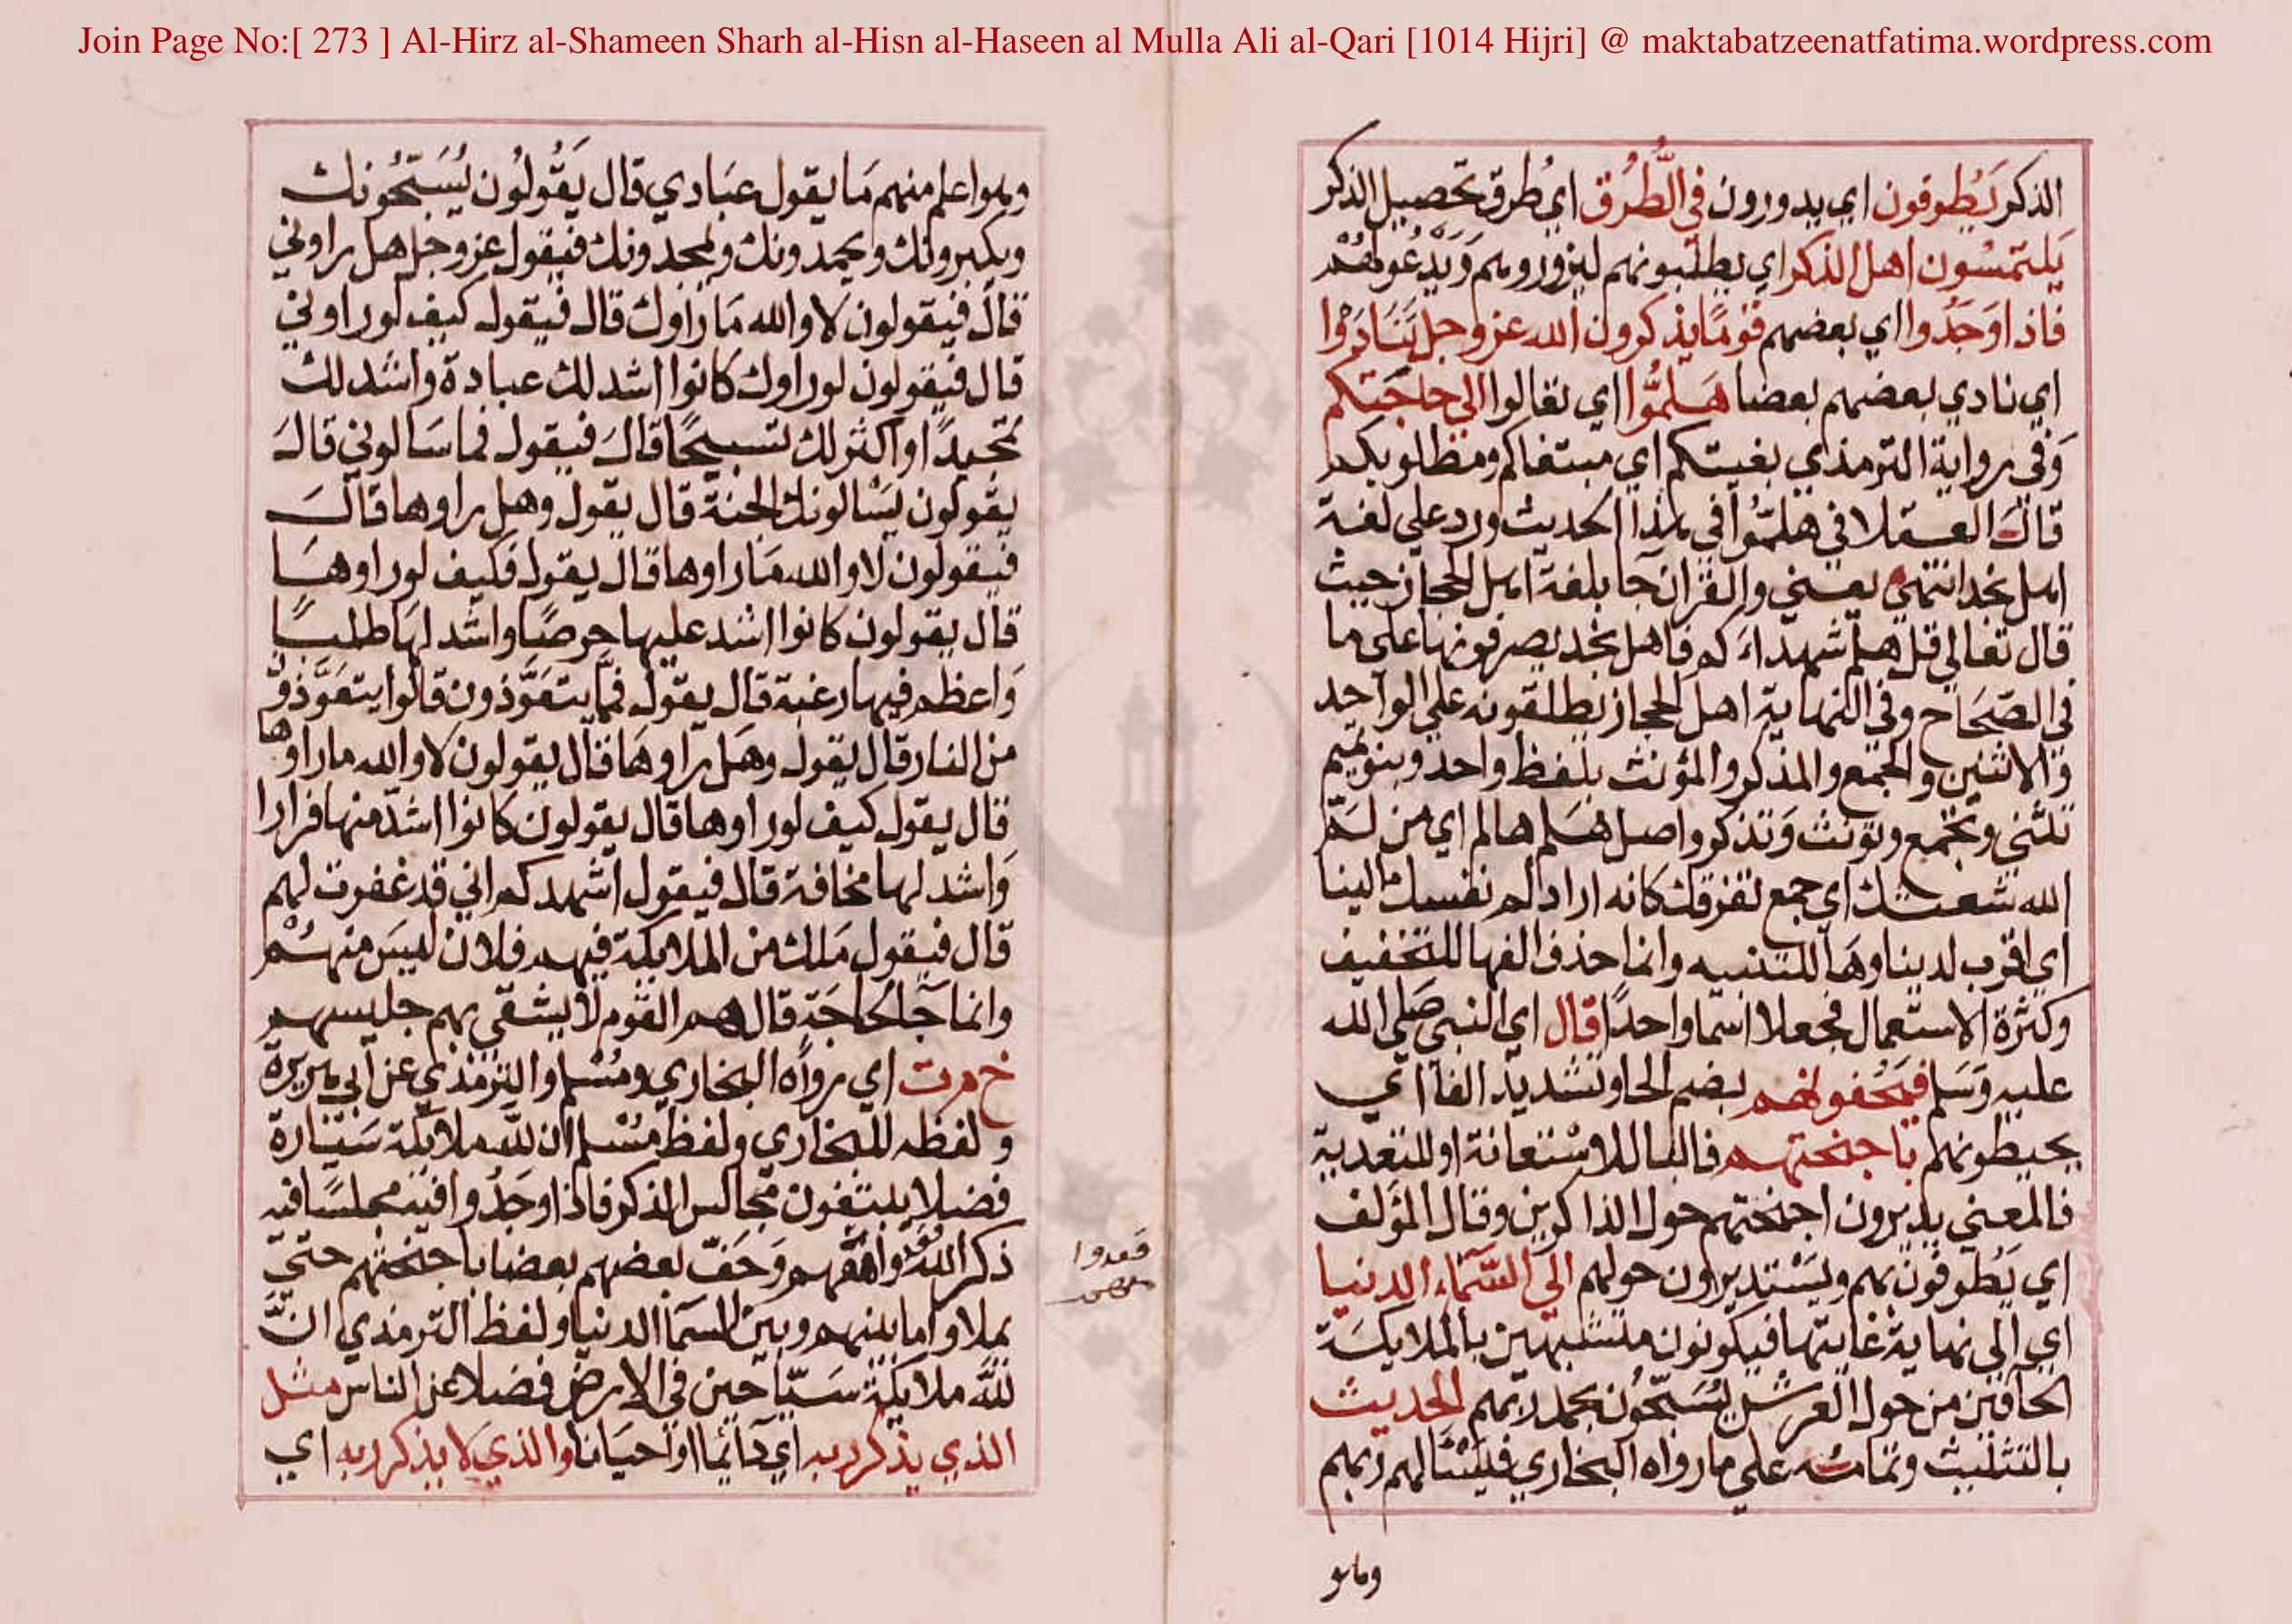 Join Page No:[ 273 ] Al-Hirz al-Shameen Sharh al-Hisn al-Haseen al Mulla Ali al-Qari [1014 Hijri] @ maktabatzeenatfatima.wordpress.com
الذكر يَطوفون اي يدورون في الطُّرُق اي طرق تحصيل الذكر
يَلتمسُون اهل الذكر اي يطلبونهم ليزوروهم وَيَدعُو لهُم
فاذا وَجَدُوا اي بعضهم قومًا يذكرون الله عز وجل يَتَنَادَوْا
اي نادي بعضهم بعضا هَلمُّوا اي تعالوا الي حاجَتكم
وَفي رواية الترمذي بغيتكم اي مبتغاكم ومطلوبكم
قالَ العسقلاني هلمُّوا في هذا الحديث ورد علي لغة
اهل نجد انتهي يعني والقران جا بلغة اهل الحجاز حيث
قال تعالي قل هلم شهداءَكم فاهل نجد يصرفونها علي ما
في الصّحَاح وفي النهاية اهل الحجاز يطلقونه علي الواحد
والاثنين والجمع والمذكر والمؤنث بلفظ واحد وبنو تميم
تثني وتجمع وتونث وَتذكر واصل هَلم هالم اي من لم
الله شعثك اي جمع تفرقك كانه اراد لم نفسك الينا
اي اقرب لدينا وهَا للتنبيه وانما حذف الفها للتخفيف
وكثرة الاستعمال فجعلا اسما واحدًا قال اي النبي صَلي الله
عليه وَسَلم فيَحُفونهم بضم الحا وتشديد الفا اي
يحيطونهم باجنحتهم فالبا للاستعانة او للتعدية
فالمعني يديرون اجنحتهم حول الذاكرين وقال المؤلف
اي يَطوفون بهم ويَسْتديرون حولهم الي السَّمَاء الدنيا
اي الي نهاية غايتها فيكونون متشبهين بالملايكَة
الحافين من حول العرش يُسَبّحُون بحمد ربهم الحديث
بالتثليث وتمامُه علي ما رواه البخاري فيَسْئالهم ربهم
وهو
وهو اعلم منهم مَا يقول عبَادي قال يَقُولُون يُسَبّحُونك
ويكبرونك ويحمدونك ويمجدونك فيقول عز وجل هل راوني
قالَ فيقولون لا والله مَا رَاوك قال فيقول كيف لو راوني
قال فيقولون لو راوك كانوا اشد لك عبادة واشد لك
تمجيدًا او اكثر لك تسبيحًا قالَ فيقول فما سَالوني قالَ
يقولون يَسْالونك الجنة قال يقول وهل راوها قالَ
فيقولون لا والله مَا راوها قال يقول فكيف لو راوهَا
قال يقولون كانوا اشد عليها حرصًا واشد لهَا طلبًا
وَاعظم فيها رغبة قال يقول فمَّا يتعَوَّذون قالوا يتعَوَّذون
من النار قال يقول وهَل راوهَا قال يقولون لا والله ما راوها
قال يقول كيف لو راوها قال يقولون كانوا اشدّ منها فرارا
وَاشد لها مخافة قال فيقول اشهدكم اني قد غفرت لهم
قال فيقول مَلك من الملايكة فيهم فلان ليسَ منهُم
وانما جَا لحَاجَة قال هم القوم لا يشقي بهم جليسهم
خ م ت اي رواه البخاري ومُسْلم والترمذي عن ابي هريرة
ولفظه للبخاري ولفظ مُسْلم ان للّه ملايكة سَيّارة
فضلا يبتغون مجالس الذكر فاذا وجَدُوا فيه مجلسًا فيه
ذكر الله قعدوا معهم وَحَفّ بعضهم بعضا باجنحتهم حتي
يملاوا ما بينهم وبين السمَا الدنيا ولفظ الترمذي انَّ
للّه ملايكة سَيّاحين في الارض فضلا عن الناس مثل
الذي يذكر ربه اي دَائِما او احيَانا والذي لا يذكر ربه اي
قعدوا